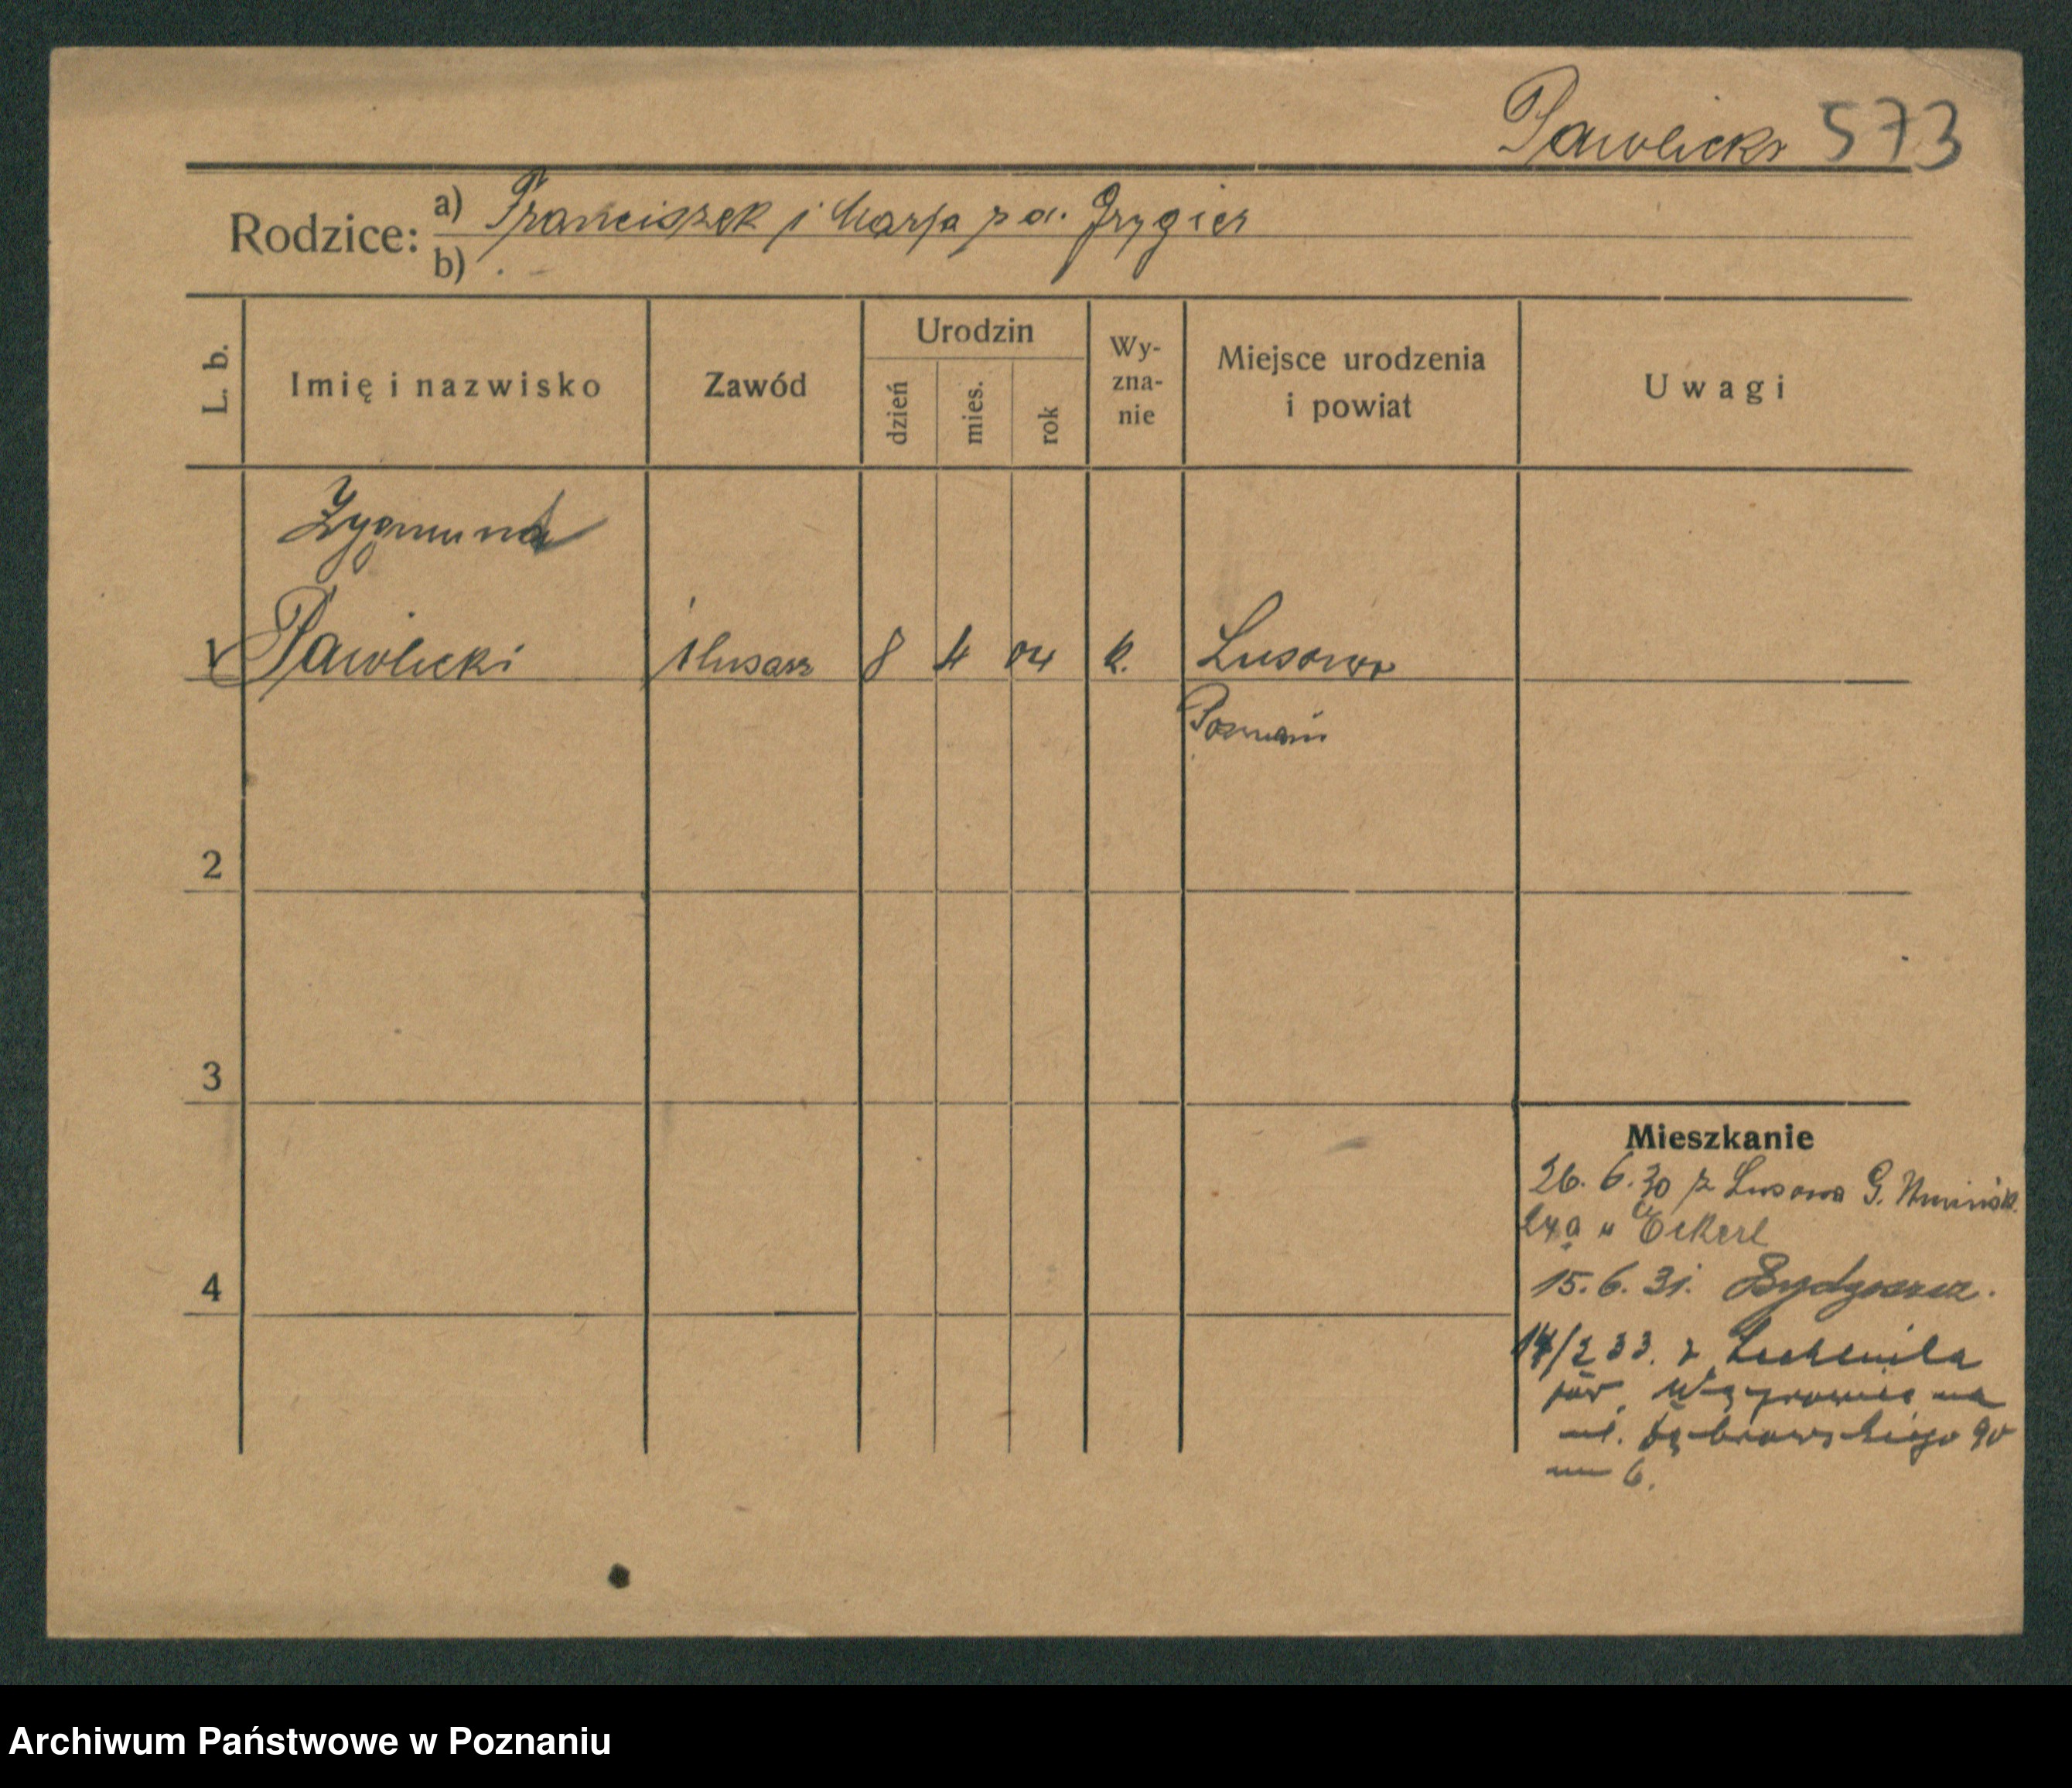 Pawlicki 573
Rodzice: a) Franciszek i Marja z d. Frygier
b)
L. b.
Imię i nazwisko
Zawód
Urodzin
dzień
mies.
rok
Wy-
zna-
nie
Miejsce urodzenia
i powiat
Uwagi
Zygmund
1 Pawlicki ślusarz 8 4 04 k. Lusowo
Poznań
2
3
Mieszkanie
26. 6. 30 z Lusowa G.
24a u Eckert
4
15. 6. 31. Bydgoszcz.
14/2 33. z
pow. Wągrowiec na
ul. Dąbrowskiego 90
m 6.
Archiwum Państwowe w Poznaniu